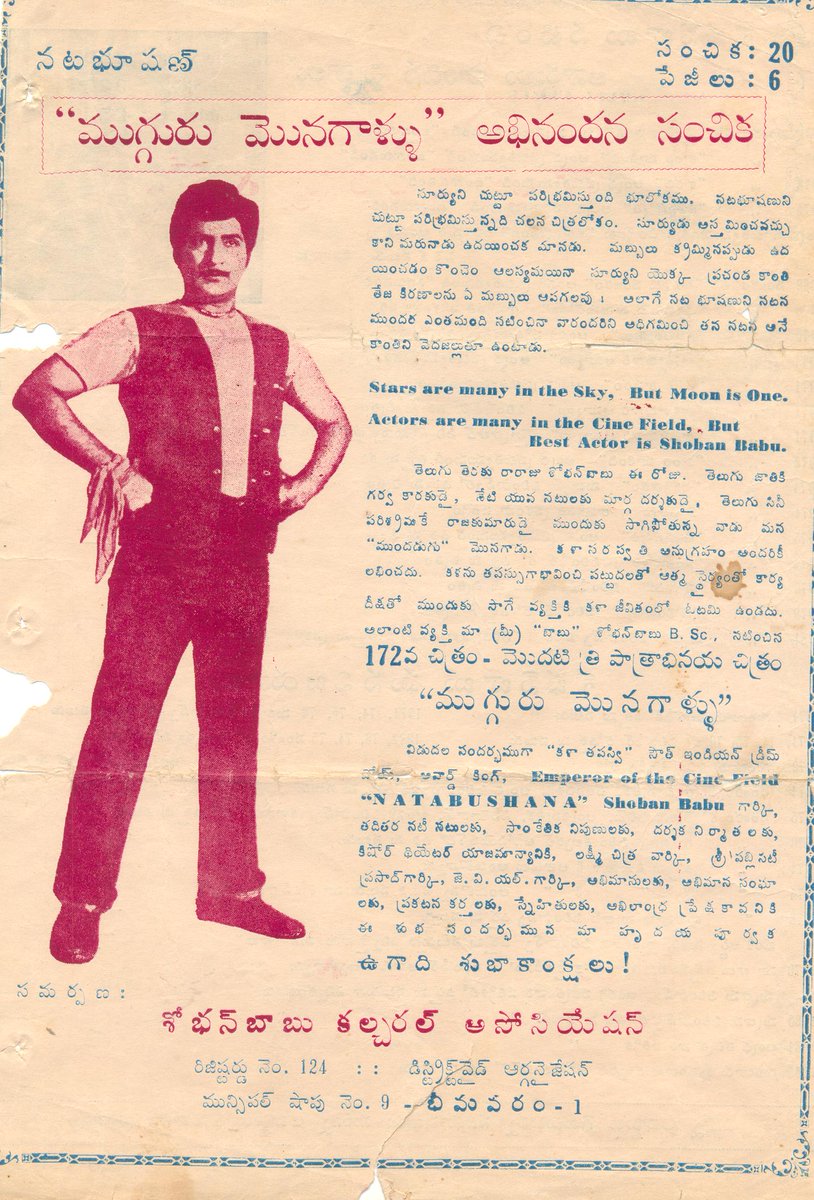 నటభూషణ్
సంచిక: 20
పేజీలు: 6
"ముగ్గురు మొనగాళ్ళు" అభినందన సంచిక
సూర్యుని చుట్టూ పరిభ్రమిస్తుంది భూలోకము. నటభూషణుని
చుట్టూ పరిభ్రమిస్తున్నది చలన చిత్రలోకం. సూర్యుడు అస్తమించవచ్చు
కాని మరునాడు ఉదయించక మానడు. మబ్బులు క్రమ్మినప్పుడు ఉద
యించడం కొంచెం ఆలస్యమయినా సూర్యుని యొక్క ప్రచండ కాంతి
తేజ కిరణాలను ఏ మబ్బులు ఆపగలవు! అలాగే నట భూషణుని నటన
ముందర ఎంతమంది నటించినా వారందరిని అధిగమించి తన నటన అనే
కాంతిని వెదజల్లుతూ ఉంటాడు.
Stars are many in the Sky, But Moon is One.
Actors are many in the Cine Field, But
Best Actor is Shoban Babu.
తెలుగు తెరకు రారాజు శోభన్‌బాబు ఈ రోజు. తెలుగు జాతికి
గర్వ కారకుడై, నేటి యువ నటులకు మార్గ దర్శకుడై, తెలుగు సినీ
పరిశ్రమకే రాజకుమారుడై ముందుకు సాగిపోతున్న వాడు మన
"ముందడుగు" మొనగాడు. కళా సరస్వతి అనుగ్రహం అందరికీ
లభించదు. కళను తపస్సుగాభావించి పట్టుదలతో ఆత్మ స్థైర్యంతో కార్య
దీక్షతో ముందుకు సాగే వ్యక్తికి కళా జీవితంలో ఓటమి ఉండదు.
అలాంటి వ్యక్తి మా (మీ) "బాబు" శోభన్‌బాబు B. Sc., నటించిన
172వ చిత్రం - మొదటి త్రి పాత్రాభినయ చిత్రం
"ముగ్గురు మొనగాళ్ళు"
విడుదల సందర్భముగా "కళా తపస్వి" సౌత్ ఇండియన్ డ్రీమ్
బోయ్, అవార్డ్ కింగ్, Emperor of the Cine Field
"NATABUSHANA" Shoban Babu గార్కి,
తదితర నటీ నటులకు, సాంకేతిక నిపుణులకు, దర్శక నిర్మాతలకు,
కిషోర్ థియేటర్ యాజమాన్యానికి, లక్ష్మీ చిత్ర వార్కి, శ్రీ పబ్లిసిటీ
ప్రసాద్‌గార్కి, జె. వి. యల్. గార్కి, అభిమానులకు, అభిమాన సంఘా
లకు, ప్రకటన కర్తలకు, స్నేహితులకు, అఖిలాంధ్ర ప్రేక్షకావనికి
ఈ శుభ సందర్భమున మా హృదయ పూర్వక
ఉగాది శుభాకాంక్షలు!
సమర్పణ:
శోభన్‌బాబు కల్చరల్ అసోసియేషన్
రిజిష్టర్డు నెం. 124 :: డిస్ట్రిక్ట్‌వైడ్ ఆర్గనైజేషన్
మున్సిపల్ షాపు నెం. 9 - భీమవరం - 1